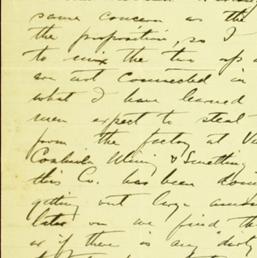 same concern as the
the proposition, so I
to mix the two up a
are not connected in
what I have learned
men expect to steal
from the factory at Va
Coahuila Mining & Smelting
this Co. has been doin
getting out large amou
later on we find th
or if there is any dirty